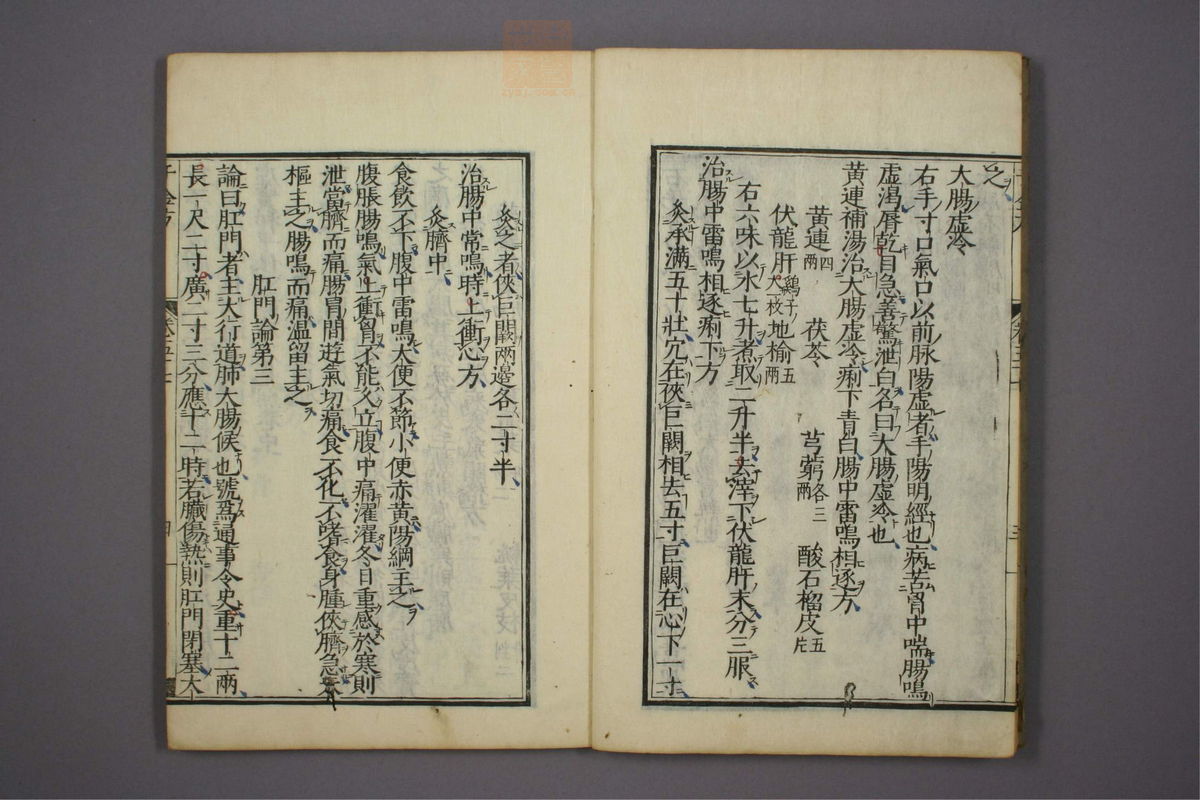 之
大腸虛冷
右手寸口氣口以前脉陽虛者手陽明經也病苦胷中喘腸鳴
虛渴脣乾目急善驚泄白名曰大腸虛冷也
黃連補湯治大腸虛冷痢下青白腸中雷鳴相逐方
黃連四兩 茯苓 芎藭各三兩 酸石榴皮五片
伏龍肝雞子大一枚 地榆五兩
右六味以水七升煮取二升半去滓下伏龍肝末分三服
治腸中雷鳴相逐痢下方
灸承滿五十壯穴在俠巨闕相去五寸巨闕在心下一寸
灸之者俠巨闕兩邊各二寸半
治腸中常鳴時上衝心方
灸臍中
食飲不下腹中雷鳴大便不節小便赤黃陽綱主之
腹脹腸鳴氣上衝胷不能久立腹中痛濯濯冬日重感於寒則
泄當臍而痛腸胃間遊氣切痛食不化不嗜食身腫俠臍急天
樞主之腸鳴而痛溫留主之
肛門論第三
論曰肛門者主大行道肺大腸候也號爲通事令史重十二兩
長一尺二寸廣二寸二分應十二時若臟傷熱則肛門閉塞大